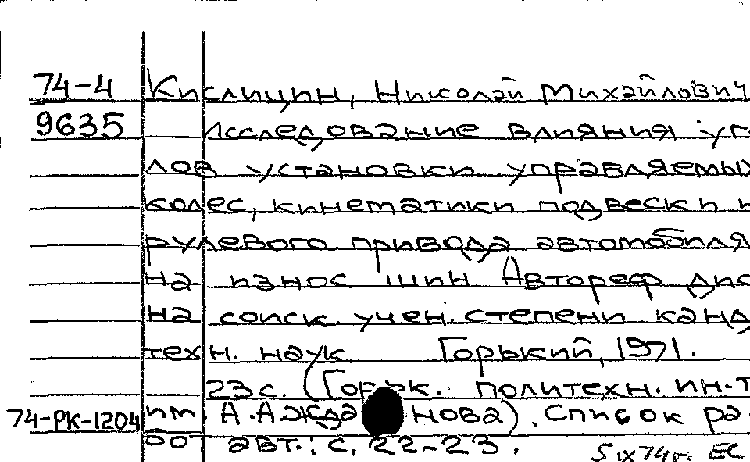 74-4 Кислицин, Николай Михайлович
9635 Исследование влияния уг
лов установки управляемых
колес, кинематики подвески и
рулевого привода автомобиля
на износ шин Автореф дис
на соиск учен. степени канд
техн. наук Горький, 1971.
23 с. (Горьк. политехн. ин-т
74-РК-1204 им. А. А. Жданова). Список ра
бот авт.: с. 22-23.
5 IX 74г. ЕС